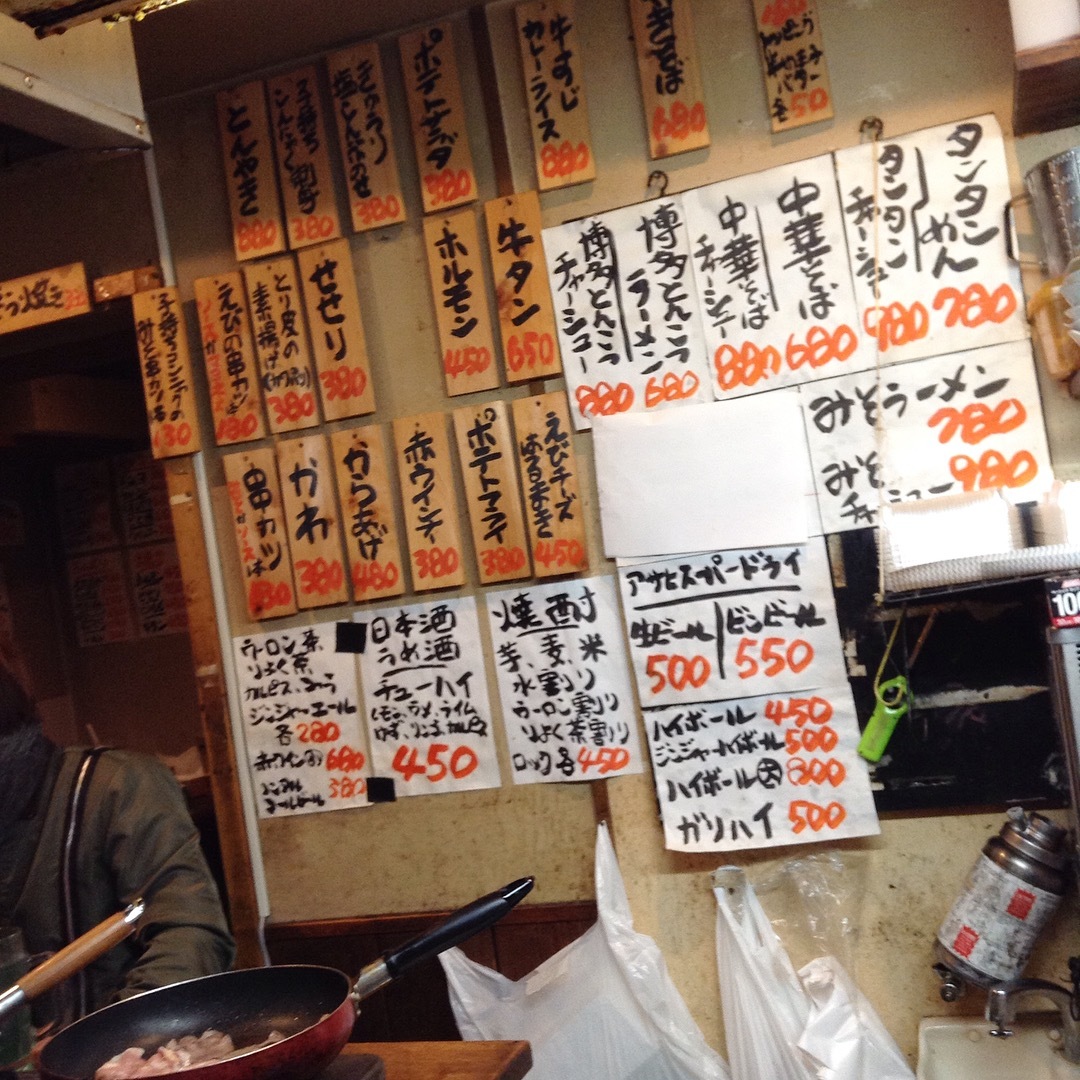 とんやき
880
子持ち
こんにゃく刺身
380
きゅうり
塩こんぶのせ
380
ポテトサラダ
380
牛すじ
カレーライス
880
やきそば
680
各50
せせり
380
とり皮の
素揚げ
380
えびの串カツ
180
みそ串カツ
130
ホルモン
450
牛タン
650
串カツ
130
かわ
380
からあげ
480
赤ウインナー
380
ポテトフライ
380
えびチーズ
はるまき
450
博多とんこつ
ラーメン
680
博多とんこつ
チャーシュー
880
中華そば
680
中華そば
チャーシュー
880
タンタンめん
780
タンタン
チャーシュー
980
みそラーメン
780
みそ
チャーシュー
980
アサヒスーパードライ
生ビール
500
ビンビール
550
ハイボール 450
ジンジャーハイボール 500
ハイボール大 800
ガリハイ 500
焼酎
芋、麦、米
水割り
ウーロン割り
りょく茶割り
ロック各450
日本酒
うめ酒
チューハイ
450
ウーロン茶、
りょく茶、
カルピス、コーラ
ジンジャーエール
各280
680
ノンアル
コールビール 380